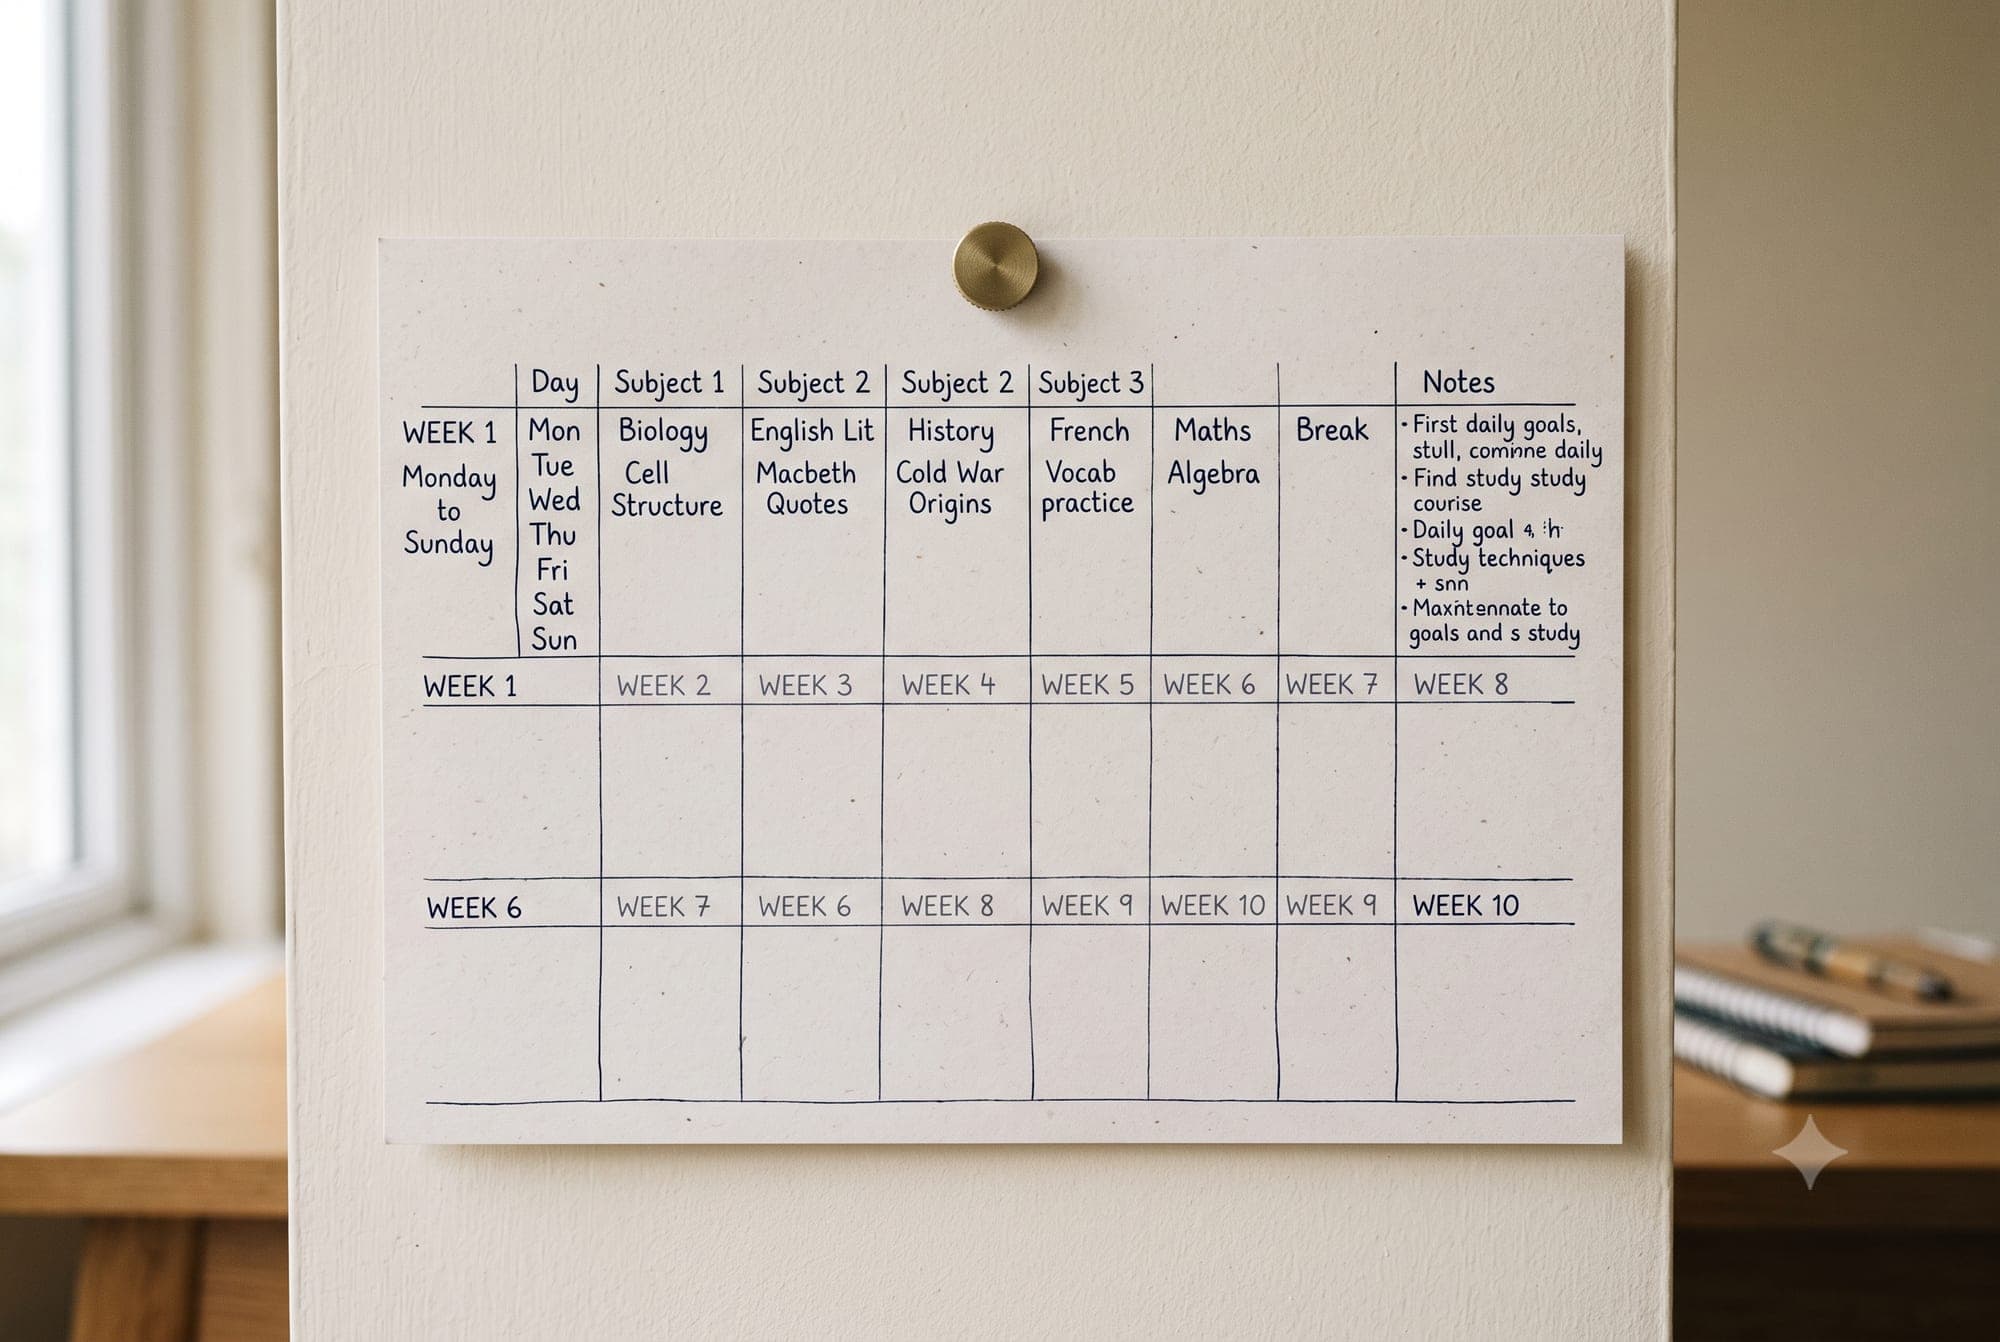 Day Subject 1 Subject 2 Subject 2 Subject 3 Notes
WEEK 1
Monday
to
Sunday
Mon
Tue
Wed
Thu
Fri
Sat
Sun
Biology
Cell
Structure
English Lit
Macbeth
Quotes
History
Cold War
Origins
French
Vocab
practice
Maths
Algebra
Break
• First daily goals,
stull, comine daily
• Find study study
courise
• Daily goal 4
• Study techniques
+ snn
• Maxintennate to
goals and s study
WEEK 1 WEEK 2 WEEK 3 WEEK 4 WEEK 5 WEEK 6 WEEK 7 WEEK 8
WEEK 6 WEEK 7 WEEK 6 WEEK 8 WEEK 9 WEEK 10 WEEK 9 WEEK 10